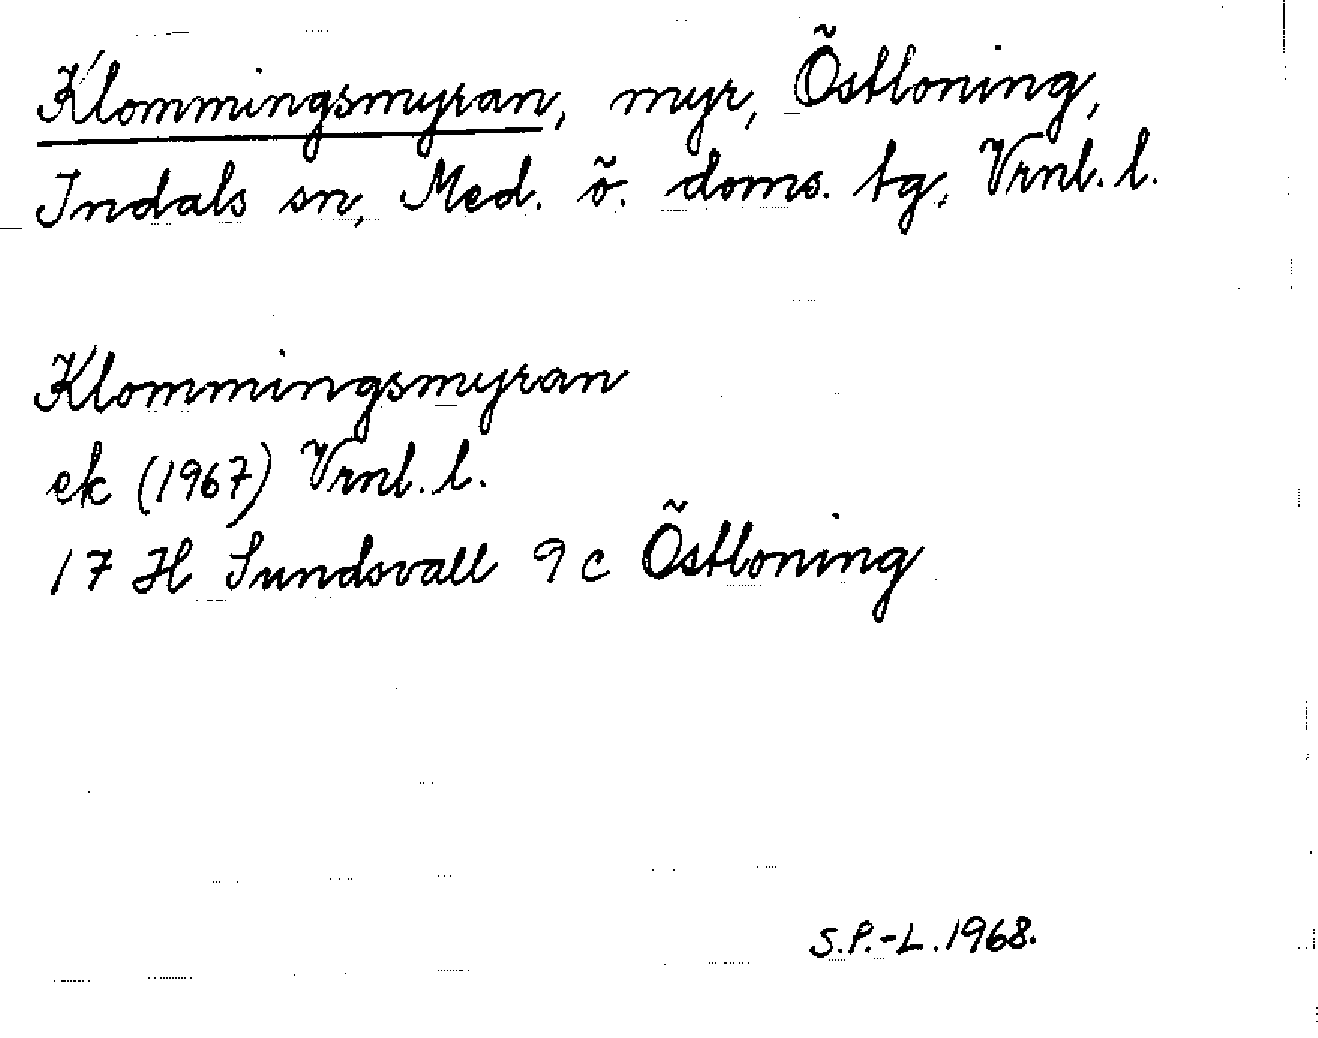 Klommingsmyran, myr, Östloning,
Indals sn, Med. ö. doms. tg, Vrnl. l.
Klommingsmyran
ek (1967) Vrnl. l.
17 H Sundsvall 9 c Östloning
S.P.-L. 1968.